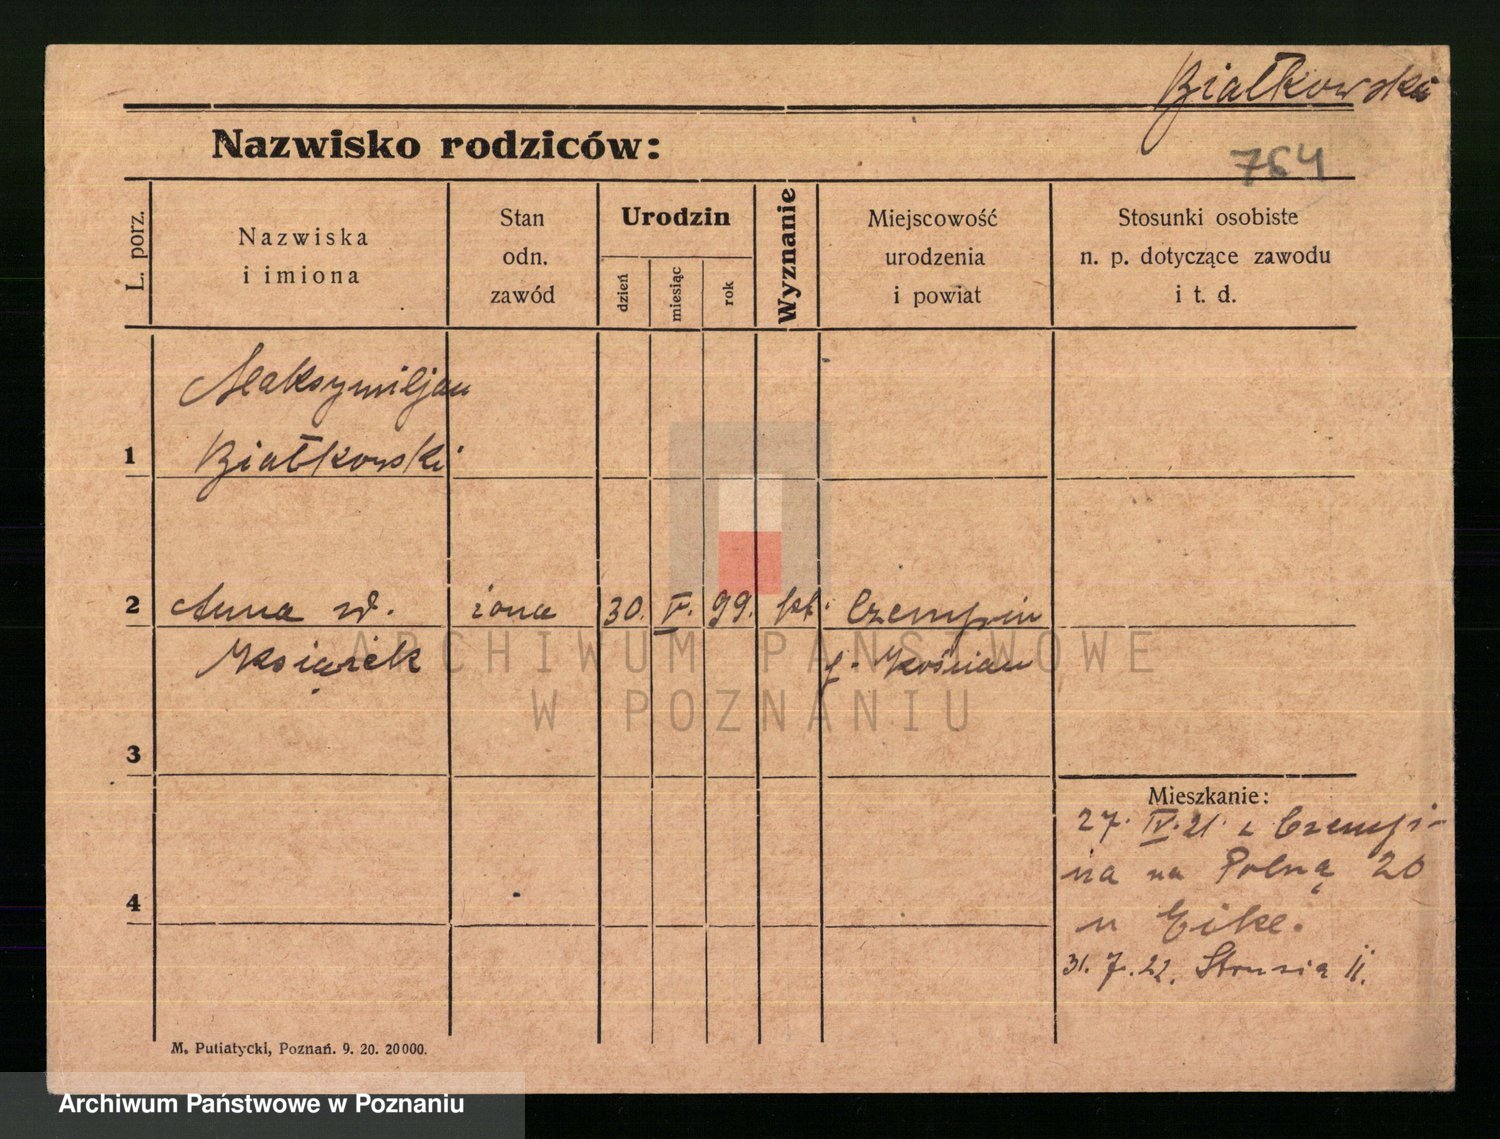 Białkowski
Nazwisko rodziców:
764
L. porz.
Nazwiska
i imiona
Stan
odn.
zawód
Urodzin
dzień
miesiąc
rok
Wyznanie
Miejscowość
urodzenia
i powiat
Stosunki osobiste
n. p. dotyczące zawodu
i t. d.
Maksymiljan
1 Białkowski
2 Anna żona 30. V. 99. kt. Czempin
Książek p. Kościan
ARCHIWUM PAŃSTWOWE
W POZNANIU
3
Mieszkanie:
27. IV. 21 z Czempi-
nia na Polną 20
4
u Eike.
31. 7. 22. Strusia 11.
M. Putiatycki, Poznań. 9. 20. 20000.
Archiwum Państwowe w Poznaniu